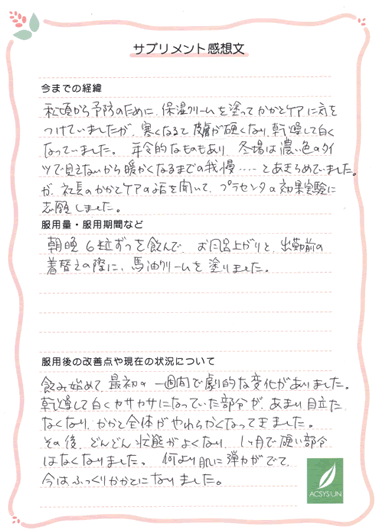 サプリメント感想文
今までの経緯
秋頃から予防のために、保湿クリームを塗ってかかとケアに気を
つけていましたが、寒くなると皮膚が硬くなり、乾燥して白く
なっていました。年令的なものもあり、冬場は濃い色のタイ
ツで見えないから暖かくなるまでの我慢‥‥とあきらめていました。
が、社長のかかとケアの話を聞いて、プラセンタの効果実験に
志願しました。
服用量・服用期間など
朝晩6粒ずつを飲んで、お風呂上がりと、出勤前の
着替えの際に、馬油クリームを塗りました。
服用後の改善点や現在の状況について
飲み始めて、最初の一週間で劇的な変化がありました。
乾燥して白くカサカサになっていた部分が、あまり目立た
なくなり、かかと全体がやわらかくなってきました。
その後、どんどん状態がよくなり、1ヶ月で硬い部分
はなくなりました。何より肌に弾力がでて、
今はふっくらかかとになりました。
ACSYSUN